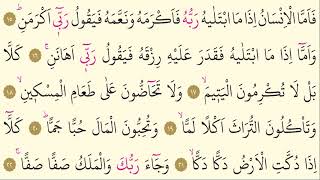 فَاَمَّا الْاِنْسَانُ اِذَا مَا ابْتَلٰيهُ رَبُّهُ فَاَكْرَمَهُ وَنَعَّمَهُ فَيَقُولُ رَبّ۪ٓي اَكْرَمَنِۜ ١٥
وَاَمَّٓا اِذَا مَا ابْتَلٰيهُ فَقَدَرَ عَلَيْهِ رِزْقَهُ فَيَقُولُ رَبّ۪ٓي اَهَانَنِۚ ١٦ كَلَّا
بَلْ لَا تُكْرِمُونَ الْيَت۪يمَۙ ١٧ وَلَا تَحَٓاضُّونَ عَلٰى طَعَامِ الْمِسْك۪ينِۙ ١٨
وَتَأْكُلُونَ التُّرَاثَ اَكْلًا لَمًّاۙ ١٩ وَتُحِبُّونَ الْمَالَ حُبًّا جَمًّاۜ ٢٠ كَلَّٓا
اِذَا دُكَّتِ الْاَرْضُ دَكًّا دَكًّاۙ ٢١ وَجَٓاءَ رَبُّكَ وَالْمَلَكُ صَفًّا صَفًّاۚ ٢٢